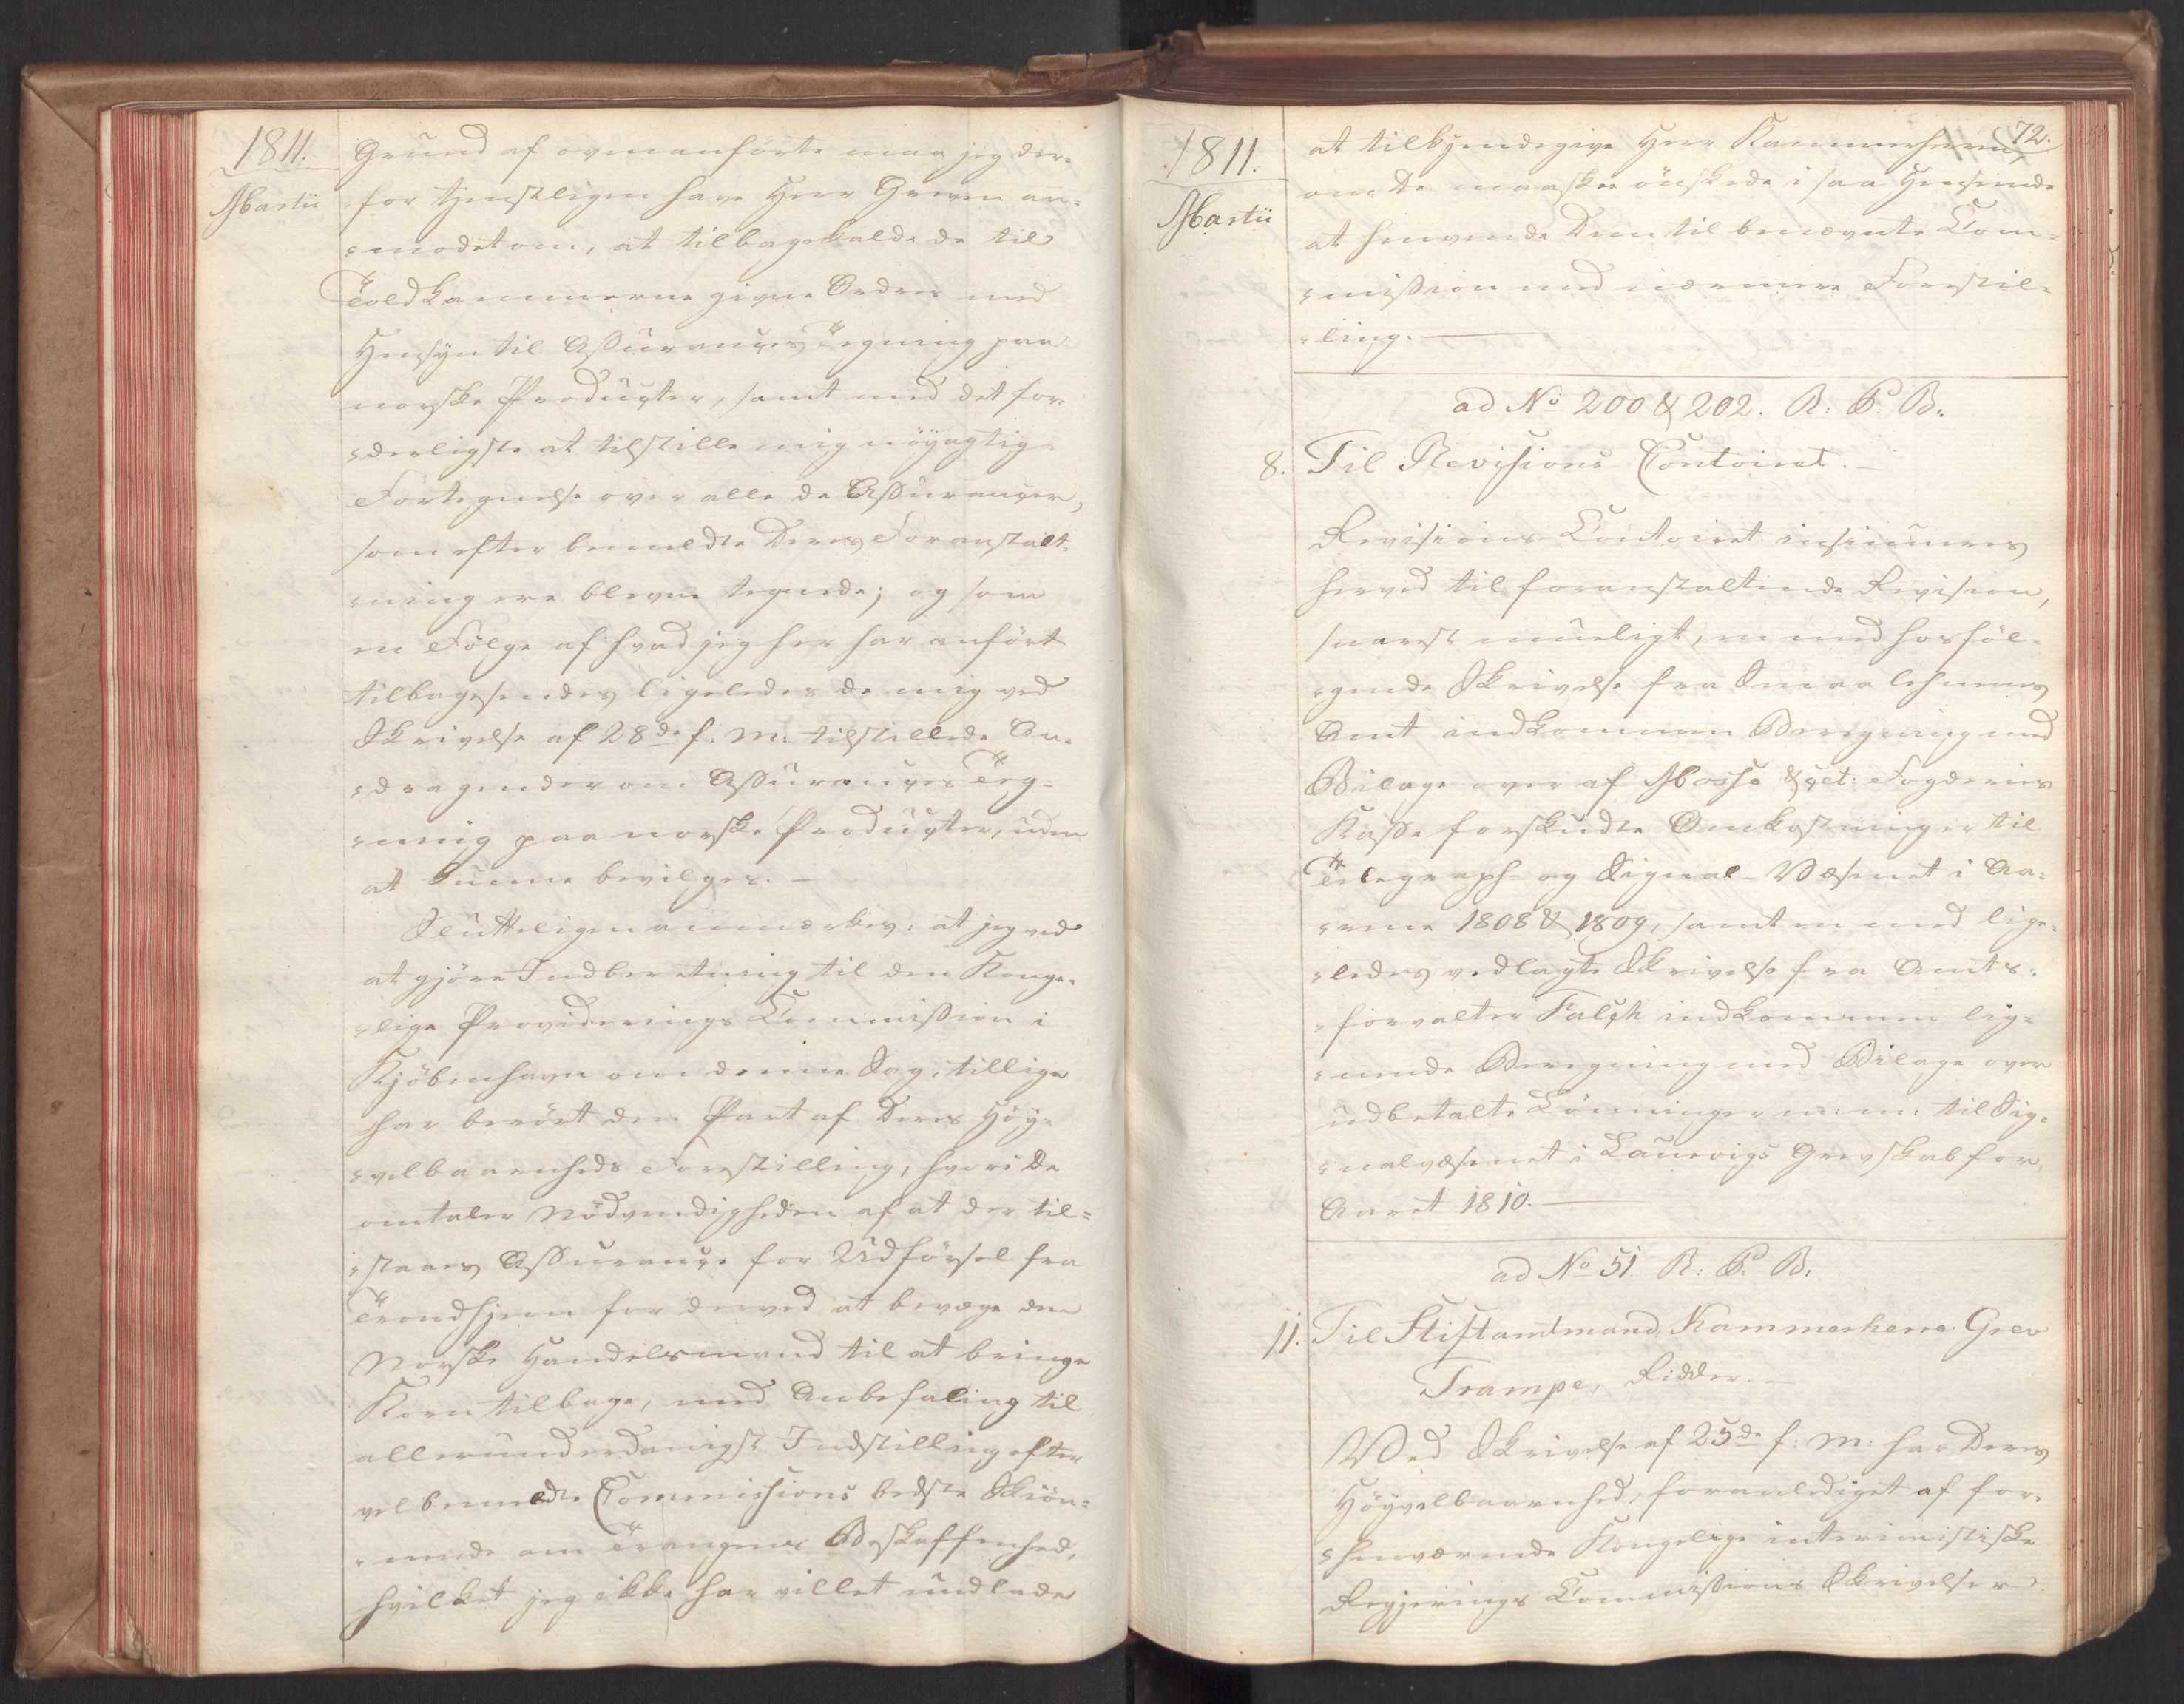 1811.
Martii
Grund af ovenanførte maa jeg der=
=for tjenstligen have Herr Greven an=
=modet om, at tilbagekalde de til
Toldkammerne givne Ordres med
Hensyn til Assurance Tegning paa
norske Producter, samt med det for=
=derligste at tilstille mig nöyagtig
Fortegnelse over alle de Assurancer,
som efter bemeldte Deres Foranstalt=
=ning ere blevne tegnede; og som
en Fölge af hvad jeg her har anfört
tilbagesendes ligeledes de mig ved
Skrivelse af 28de f. M: tilstillede An=
=dragender om Assurance Teg=
=ning paa norske Producter, uden
at kunne bevilges. —
Sluttligen anmærkes: at jeg ved
at gjöre Indberetning til den Konge=
=lige Providerings Commission i
Kjöbenhavn om denne Sag, tillige
har berört den Part af Deres Höy=
=velbaarenheds Forestilling, hvori De
omtaler Nödvendigheden af at der til=
=staaes Assurance for Udförsel fra
Trondhjem for derved at bevæge den
Norske Handelsmand til at bringe
Korn tilbage, med Anbefaling til
allerunderdanigst Indstilling efter
velbemeldte Commissions bedste Skiön=
=nende om Trangens Beskaffenhed,
hvilket jeg ikke har villet undlade
72.
1811.
Martii
at tilkjendegive Herr Kammerherren,
om De maaskee önskede i saa Henseende
at henvende Dem til benævnte Com=
=mission med nærmere Forestil=
=ling. —
ad No 200 & 202. R: P. B.
8. Til Revisions Contoiret. —
Revisions Contoiret insinueres
herved til foranstaltende Revision,
snarest mueligt, en med hosföl=
=gende Skrivelse fra Smaalehnenes
Amt indkommen Beregning med
Bilage over af Mosse &ct: Fogderies
Kasse forskudte Omkostninger til
Telegraph- og Signal-Væsenet i Aa=
=rene 1808 & 1809, samt en med lige=
=ledes vedlagte Skrivelse fra Amts=
=forvalter Falch indkommen lig=
=nende Beregning med Bilage over
udbetalte Lönninger m: m: til Sig=
=nalvæsenet i Laurvigs Grevskab for
Aaret 1810. —
ad No 51 R: P. B.
11. Til Stiftamtmand, Kammerherre Grev
Trampe, Ridder. —
Ved Skrivelse af 25de f: M: har Deres
Höyvelbaarenhed, foranlediget af for=
=henværende Kongelige interimistiske
Regjerings Commissions Skrivelser